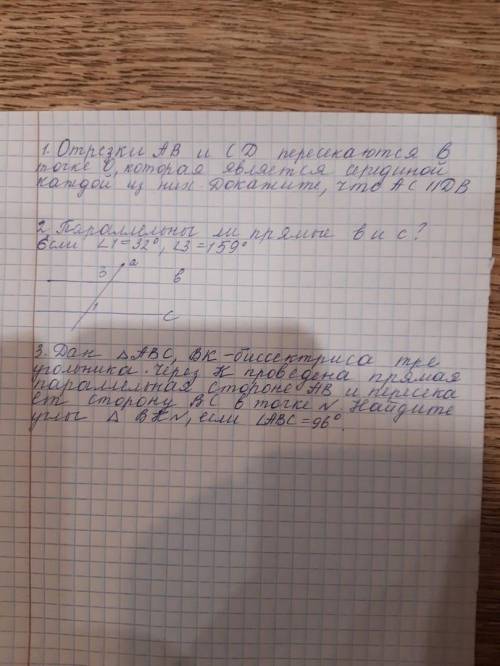 1. Отрезки АВ и CD пересекаются в
точке О, которая является серединой
каждой из них Докажите, что АС || DB
2. Параллельны ли прямые в и с?
Если ∠1=32°, ∠3=159°
а
3
в
1
с
3. Дан △ABC, ВК-биссектриса тре
угольника. Через К проведена прямая
параллельная стороне АВ и пересека
ет сторону ВС в точке N. Найдите
углы △ BKN, если ∠ABC=96°.